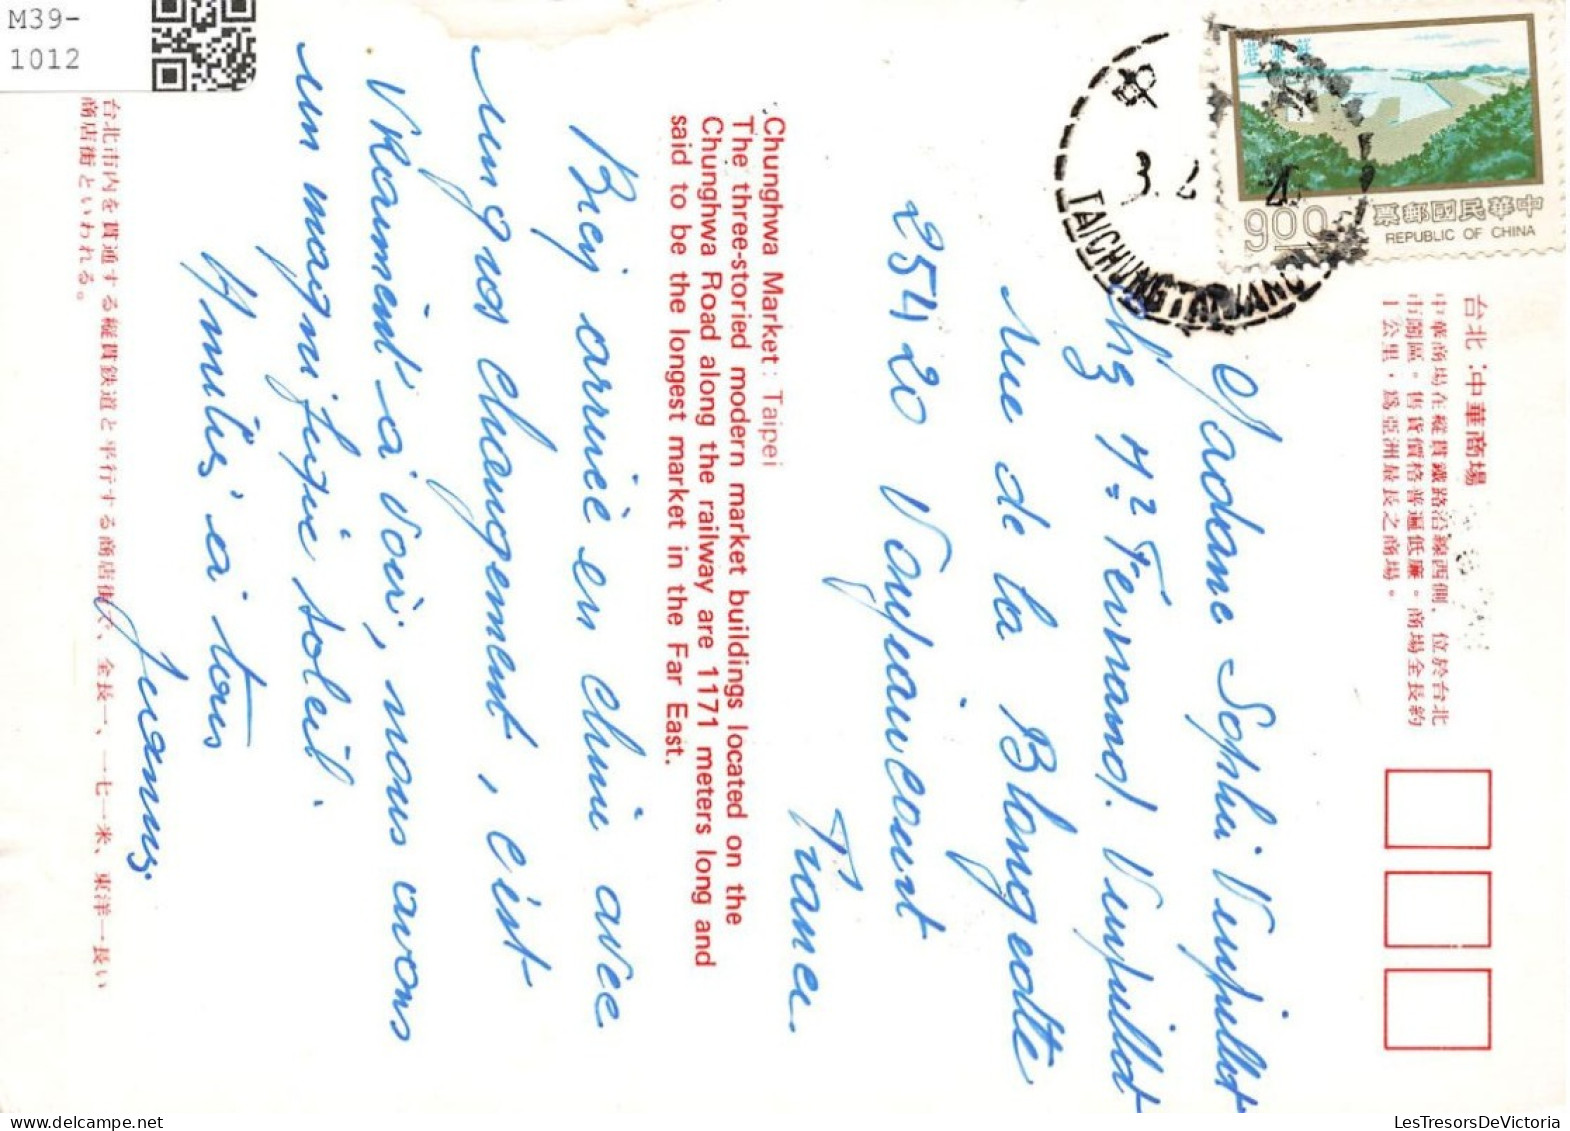 M39-
1012
港澳蘇
中華民國郵票
9.00
REPUBLIC OF CHINA
TAICHUNG TAIWAN
3. 2
台北：中華商場
中華商場在縱貫鐵路沿線西側、位於台北
市鬧區。售貨價格普遍低廉。商場全長約
1公里，爲亞洲最長之商場。
Madame Sophie Vupillot
chez Mr Fernand. Vupillot
rue de la Blongeotte
25420 Voujeaucourt
France.
Chunghwa Market: Taipei
The three-storied modern market buildings located on the
Chunghwa Road along the railway are 1171 meters long and
said to be the longest market in the Far East.
Bien arrivée en chine avec
un gros changement, c'est
Vraiment à voir, nous avons
un magnifique soleil.
Amitiés à tous
台北市内を貫通する縦貫鉄道と平行する商店街で、全長一、一七一米、東洋一長い
商店街といわれる。
LesTresorsDeVictoria